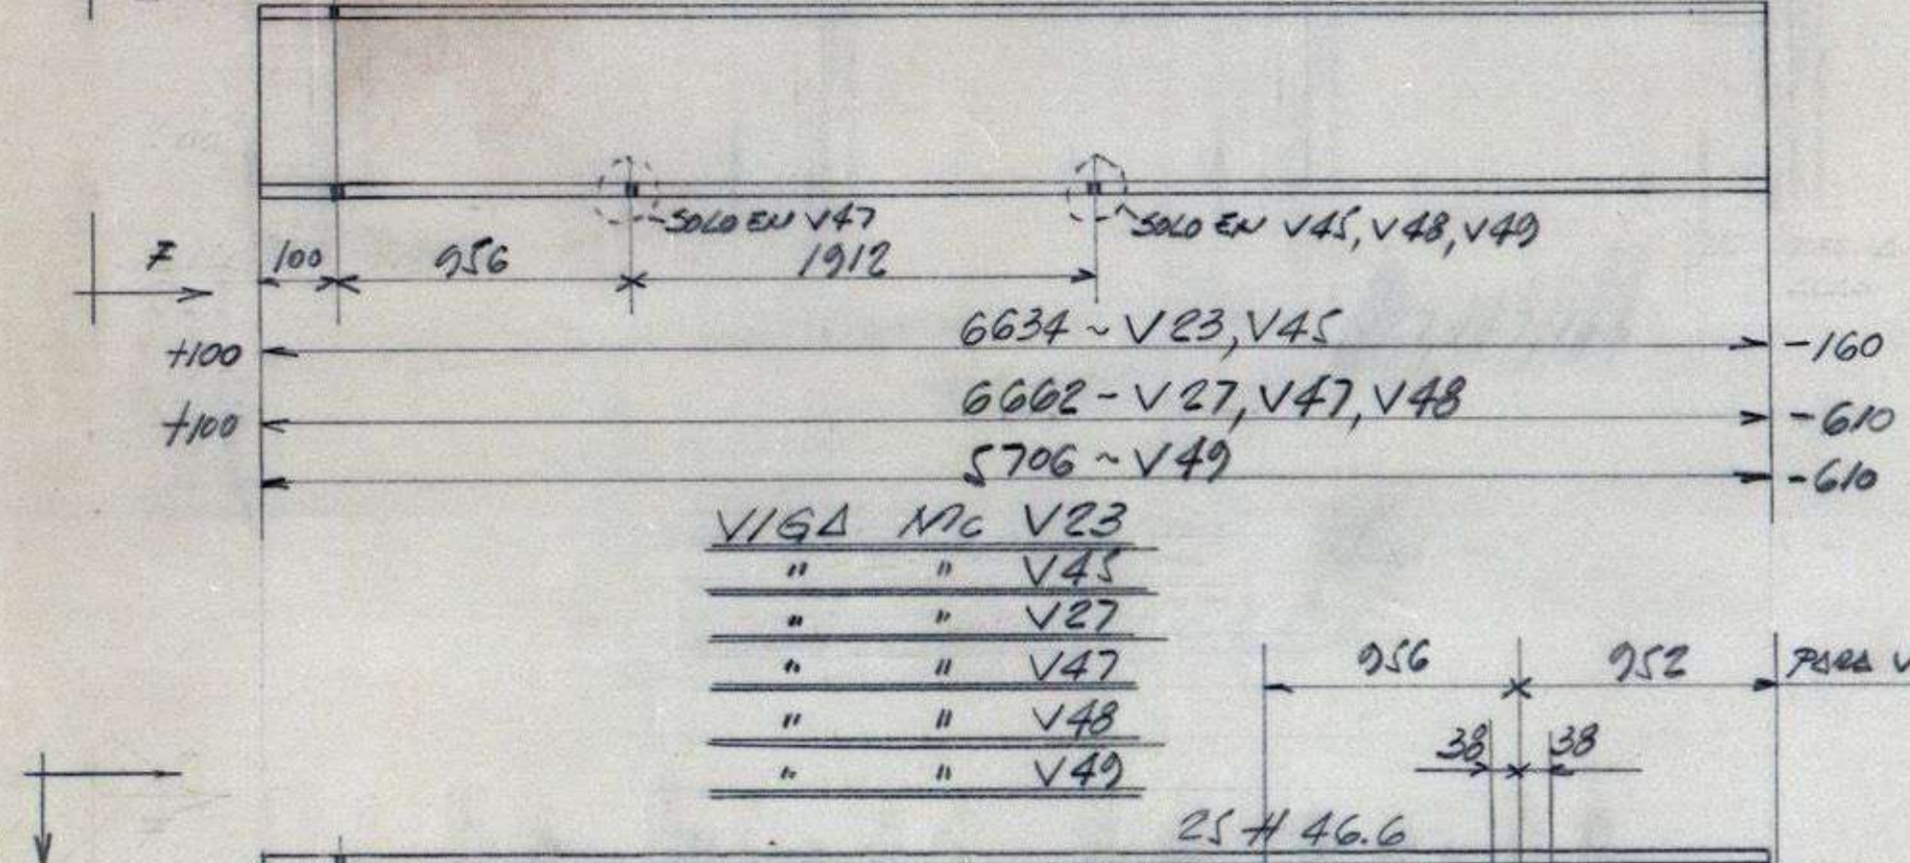 SOLO EN V47
SOLO EN V45, V48, V49
Z 100 956 1912
6634 ~ V23, V45
+100 -160
6662 - V27, V47, V48
+100 -610
5706 ~ V49
-610
VIGA Mc V23
" " V45
" " V27
" " V47
" " V48
" " V49
956 952 PARA V
38 38
25 # 46.6